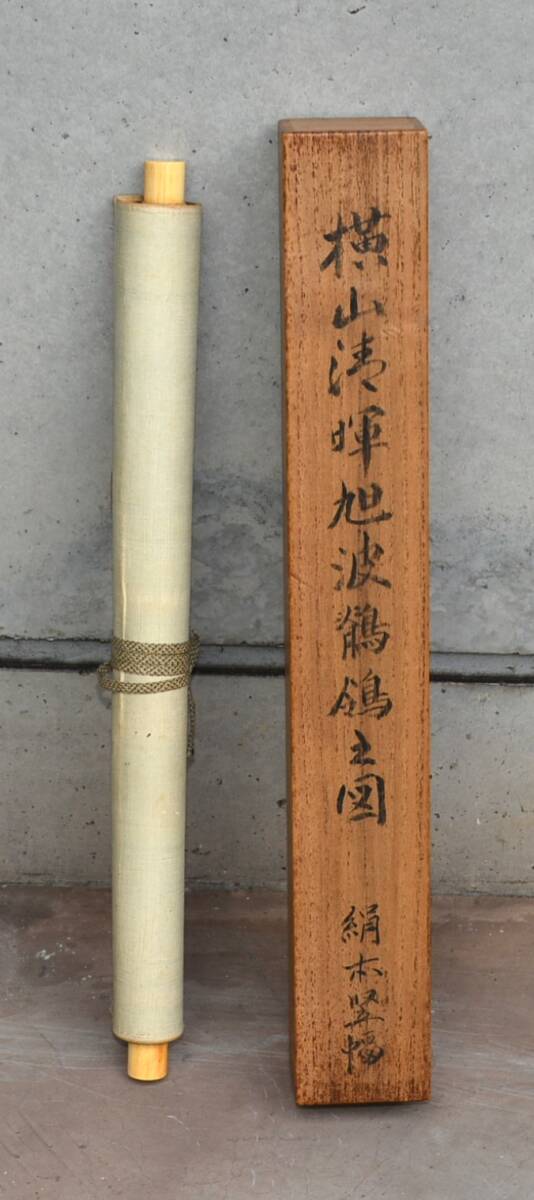 横山清暉旭波鶺鴒之図
絹本竪幅